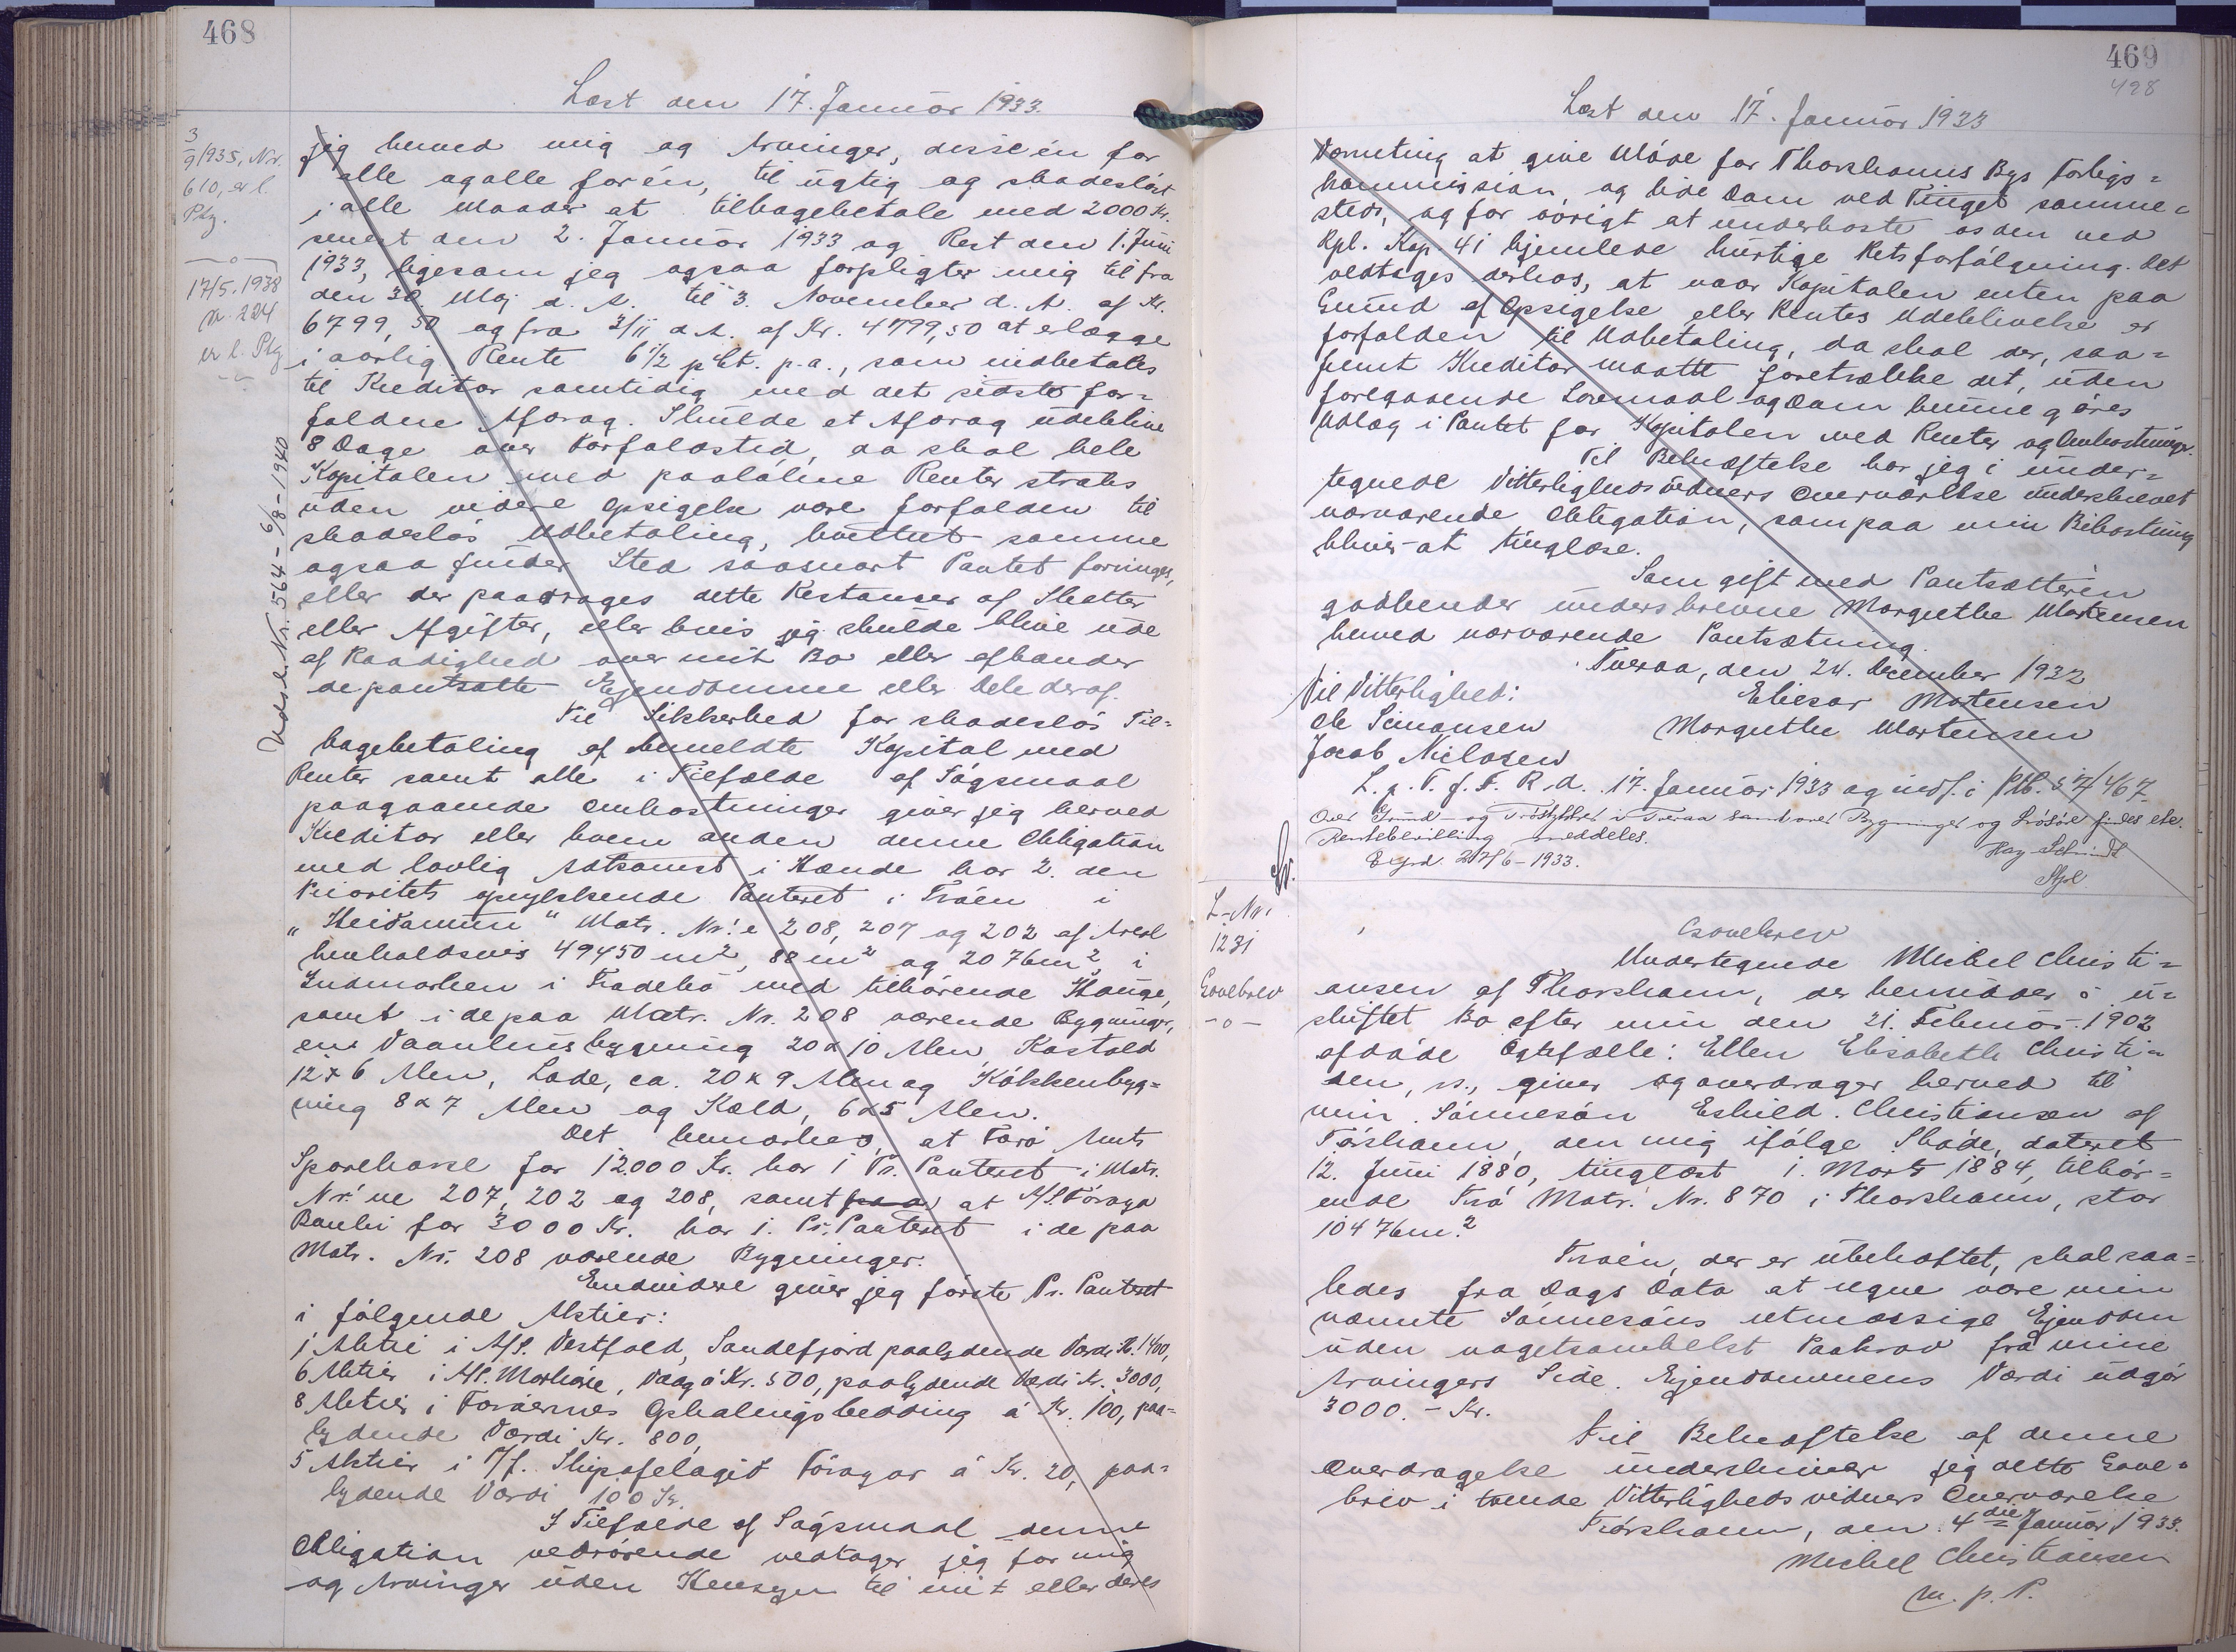 468
Læst den 17. Januar 1933.
3/9 1935, Nr.
610, er l.
Ptg.
17/5. 1938
Nr. 224
er l. Ptg
Udsl. Nr. 564 - 6/8 - 1940
jeg herved mig og Arvinger, disse èn for
alle og alle for èn, til rigtig og skadesløst
i alle Maader at tilbagebetale med 2000 Kr.
senest den 2. Januar 1933 og Rest den 1. Juni
1933, ligesom jeg ogsaa forpligter mig til fra
den 30. Maj d. A. til 3. November d. A. af Kr.
6799,50 og fra 3/11 d. A. af Kr. 4799,50 at erlægge
i aarlig Rente 6 1/2 pCt. p.a., som indbetales
til Kreditor samtidig med det sidste for=
faldne Afdrag. Skulde et Afdrag udeblive
8 Dage over Forfaldstid, da skal hele
Kapitalen med paaløbne Renter straks
uden videre Opsigelse være forfalden til
skadesløs Udbetaling, hvilket samme
ogsaa finder Sted saasnart Pantet forringes,
eller der paadrages dette Restancer af Skatter
eller Afgifter, eller hvis jeg skulde blive ude
af Raadighed over mit Bo eller afhænder
de pantsatte Ejendomme eller Dele deraf.
Til Sikkerhed for skadesløs Til=
bagebetaling af bemeldte Kapital med
Renter samt alle i Tilfælde af Søgsmaal
paagaaende Omkostninger giver jeg herved
Kreditor eller hvem anden denne Obligation
med lovlig Adkomst i Hænde har 2. den
Prioritets opryk­kende Panteret i Traèn i
"Heidamun" Matr. Nr.'e 208, 207 og 202 af Areal
henholdsvis 49450 m², 88 m² og 2076 m² i
Indmarken i Frodebø med tilhørende Hauge,
samt i de paa Matr. Nr. 208 værende Bygninger,
en Vaaningsbygning 20 x 10 Alen, Kostald
12 x 6 Alen, Lade, ca. 20 x 9 Alen og Køkkenbyg=
ning 8 x 7 Alen og Kæld, 6 x 5 Alen.
Det bemærkes, at Færø Amts
Sparekasse for 12.000 Kr. har 1 Pr. Panteret i Matr.
Nr.'ne 207, 202 og 208, samt paa at A/S. Føroya
Banki for 3000 Kr. har 1. Pr. Panteret i de paa
Matr. Nr. 208 værende Bygninger.
Endvidere giver jeg første Pr. Panteret
i følgende Aktier:
1 Aktie i A/S. Vestfold, Sandefjord paalydende Værdi Kr. 1400,
6 Aktier i A/S. Vaag á Kr. 500, paalydende Værdi Kr. 3000,
8 Aktier i Færøernes Ophalingsbedding á Kr. 100, paa=
lydende Værdi Kr. 800,
5 Aktier i P/f. Skipafelagið Føroyar á Kr. 20, paa=
lydende Værdi 100 Kr.
I Tilfælde af Søgsmaal denne
Obligation vedrørende vedtager jeg for mig
og Arvinger uden Hensyn til mit eller deres
469
498
Læst den 17. Januar 1933
Værneting at give Møde for Thorshavns Bys Forligs=
kommission og lide Dom ved Tinget samme=
steds, og for øvrigt at underkaste os den ved
Rpl. Kap. 41 hjemlede hurtige Retsforfølgning. Det
vedtages derhos, at naar Kapitalen enten paa
Grund af Opsigelse eller Rentes Udeblivelse er
forfalden til Udbetaling, da skal der, saa=
fremt Kreditor maatte foretrække det, uden
foregaaende Lovmaal og Dom kunne gøres
Udlæg i Pantet for Kapitalen med Renter og Omkostninger.
Til Bekræftelse har jeg i under=
tegnede Vitterlighedsvidners Overværelse underskrevet
nærværende Obligation, som paa min Bekostning
bliver at tinglæse.
Som gift med Pantsætteren
godkender underskrevne Margrethe Mortensen
herved nærværende Pantsætning.
Tveraa, den 24. December 1932
Til Vitterlighed:
Eliesar Mortensen
Ole Simonsen
Margrethe Mortensen
Jacob Nielsen
L. p. T. f. F. R. d. 17. Januar 1933 og indf. i Ptb. S 7/467.
Over Grund- og Trøstykker i Tveraa samt over Bygninger og Løsøre findes ekr.
meddeles.
27/6 - 1933.
Hay-Schmidt
L-Nr.
1231
Gavebrev
- o -
Gavebrev
Undertegnede Mikkel Christi=
ansen af Thorshavn, der hensidder i u=
skiftet Bo efter min den 21. Februar 1902
afdøde Ægtefælle: Ellen Elisabeth Christi=
den, giver og overdrager herved til
min Sønnesøn Eskild Christiansen af
Tórshavn, den mig ifølge Skøde, dateret
12. Juni 1880, tinglæst 1. Marts 1884, tilhør=
ende Trø Matr. Nr. 870 i Thorshavn, stor
10476 m.²
Trøen, der er ubehæftet, skal saa=
ledes fra Dags Dato at regne være min
nævnte Sønnesøns retmæssige Ejendom
uden nogetsomhelst Paakrav fra mine
Arvingers Side. Ejendommens Værdi udgør
3000. - Kr.
Til Bekræftelse af denne
Overdragelse underskriver jeg dette Gave=
brev i tvende Vitterlighedsvidners Overværelse
Tórshavn, den 4 die Januar 1933.
Mikkel Christiansen
m. p. P.